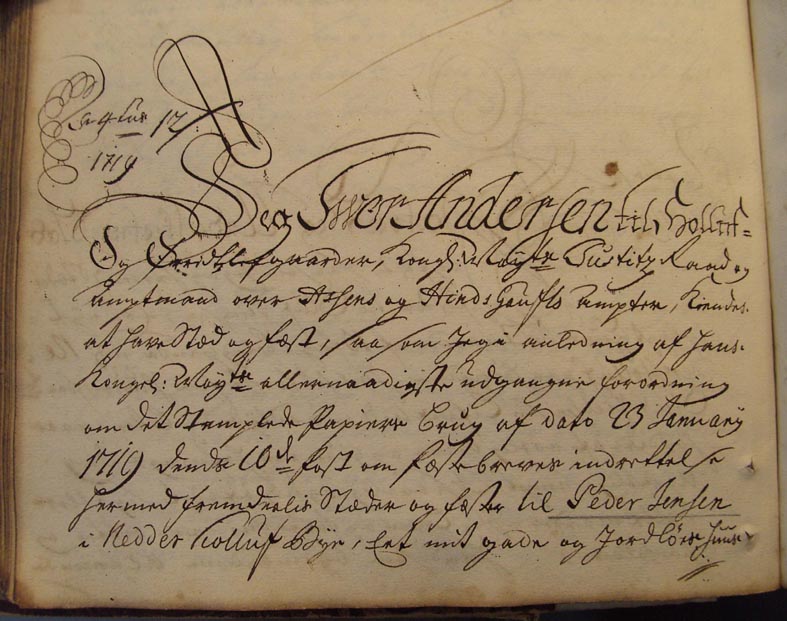 1719
Jeg Iwer Andersen til Holluf=
Og Fredtzlefgaarder, Kongl: Mayts Justitz Raad og
Amptmand over Assens og Hinds Gaufls Ampter, Kiendes
at have Stæd og fæst, saa som Jeg i anledning af hans
Kongel: Mayts allernaadigste udgangne forordning
om det Stemplede Papiers brug af dato 23 January
1719 dends 10de Post om fæstebreves indrettelse
hermed fremdeelis Stæder og fæster til Peder Jensen
i Nedder Holluf Bye, Eet mit gade og Jordløes Huus